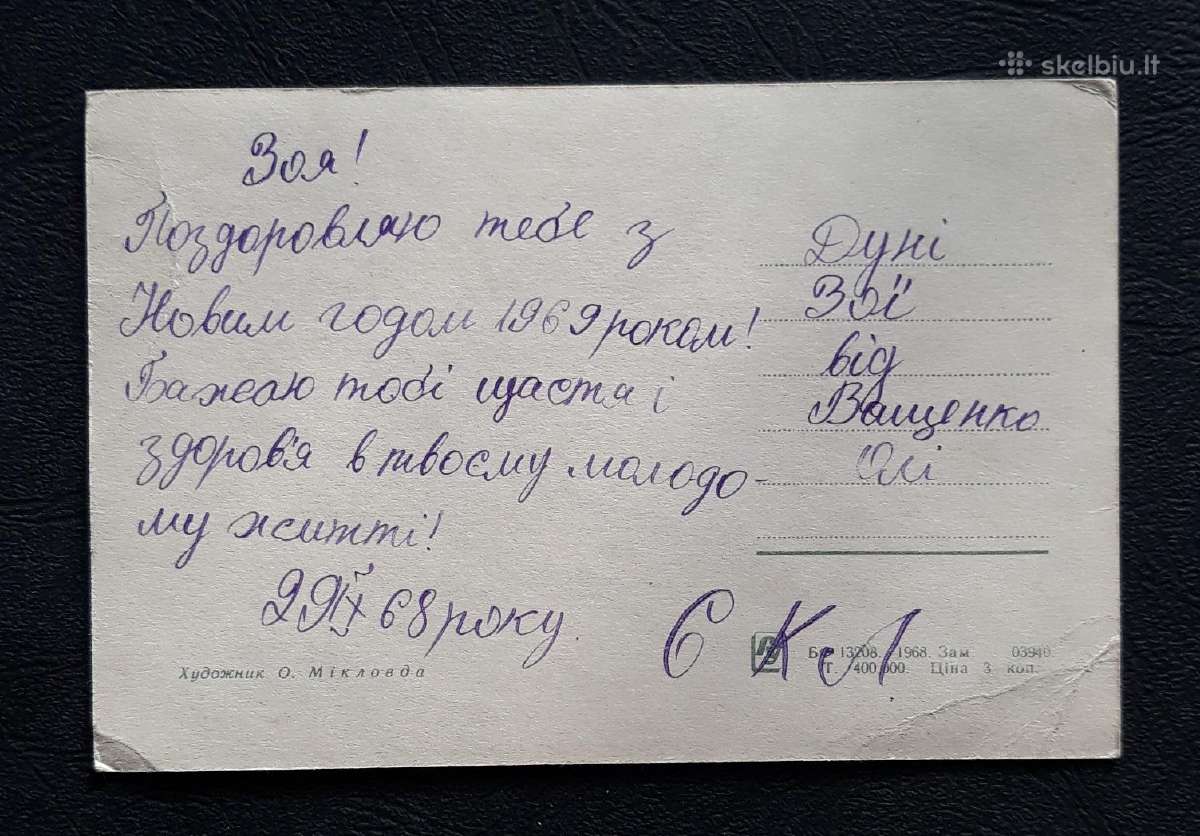 skelbiu.lt
Зоя!
Поздоровляю тебе з
Новим годом 1969 роком!
Бажаю тобі щастя і
здоров'я в твоєму молодо-
му житті!
29 68 року.
Дуні
Зої
від
Ващенко
Олі
6 Кл
Художник О. Мікловда
БФ 13208. 1968. Зам 03940.
Т. 400.000. Ціна 3 коп.